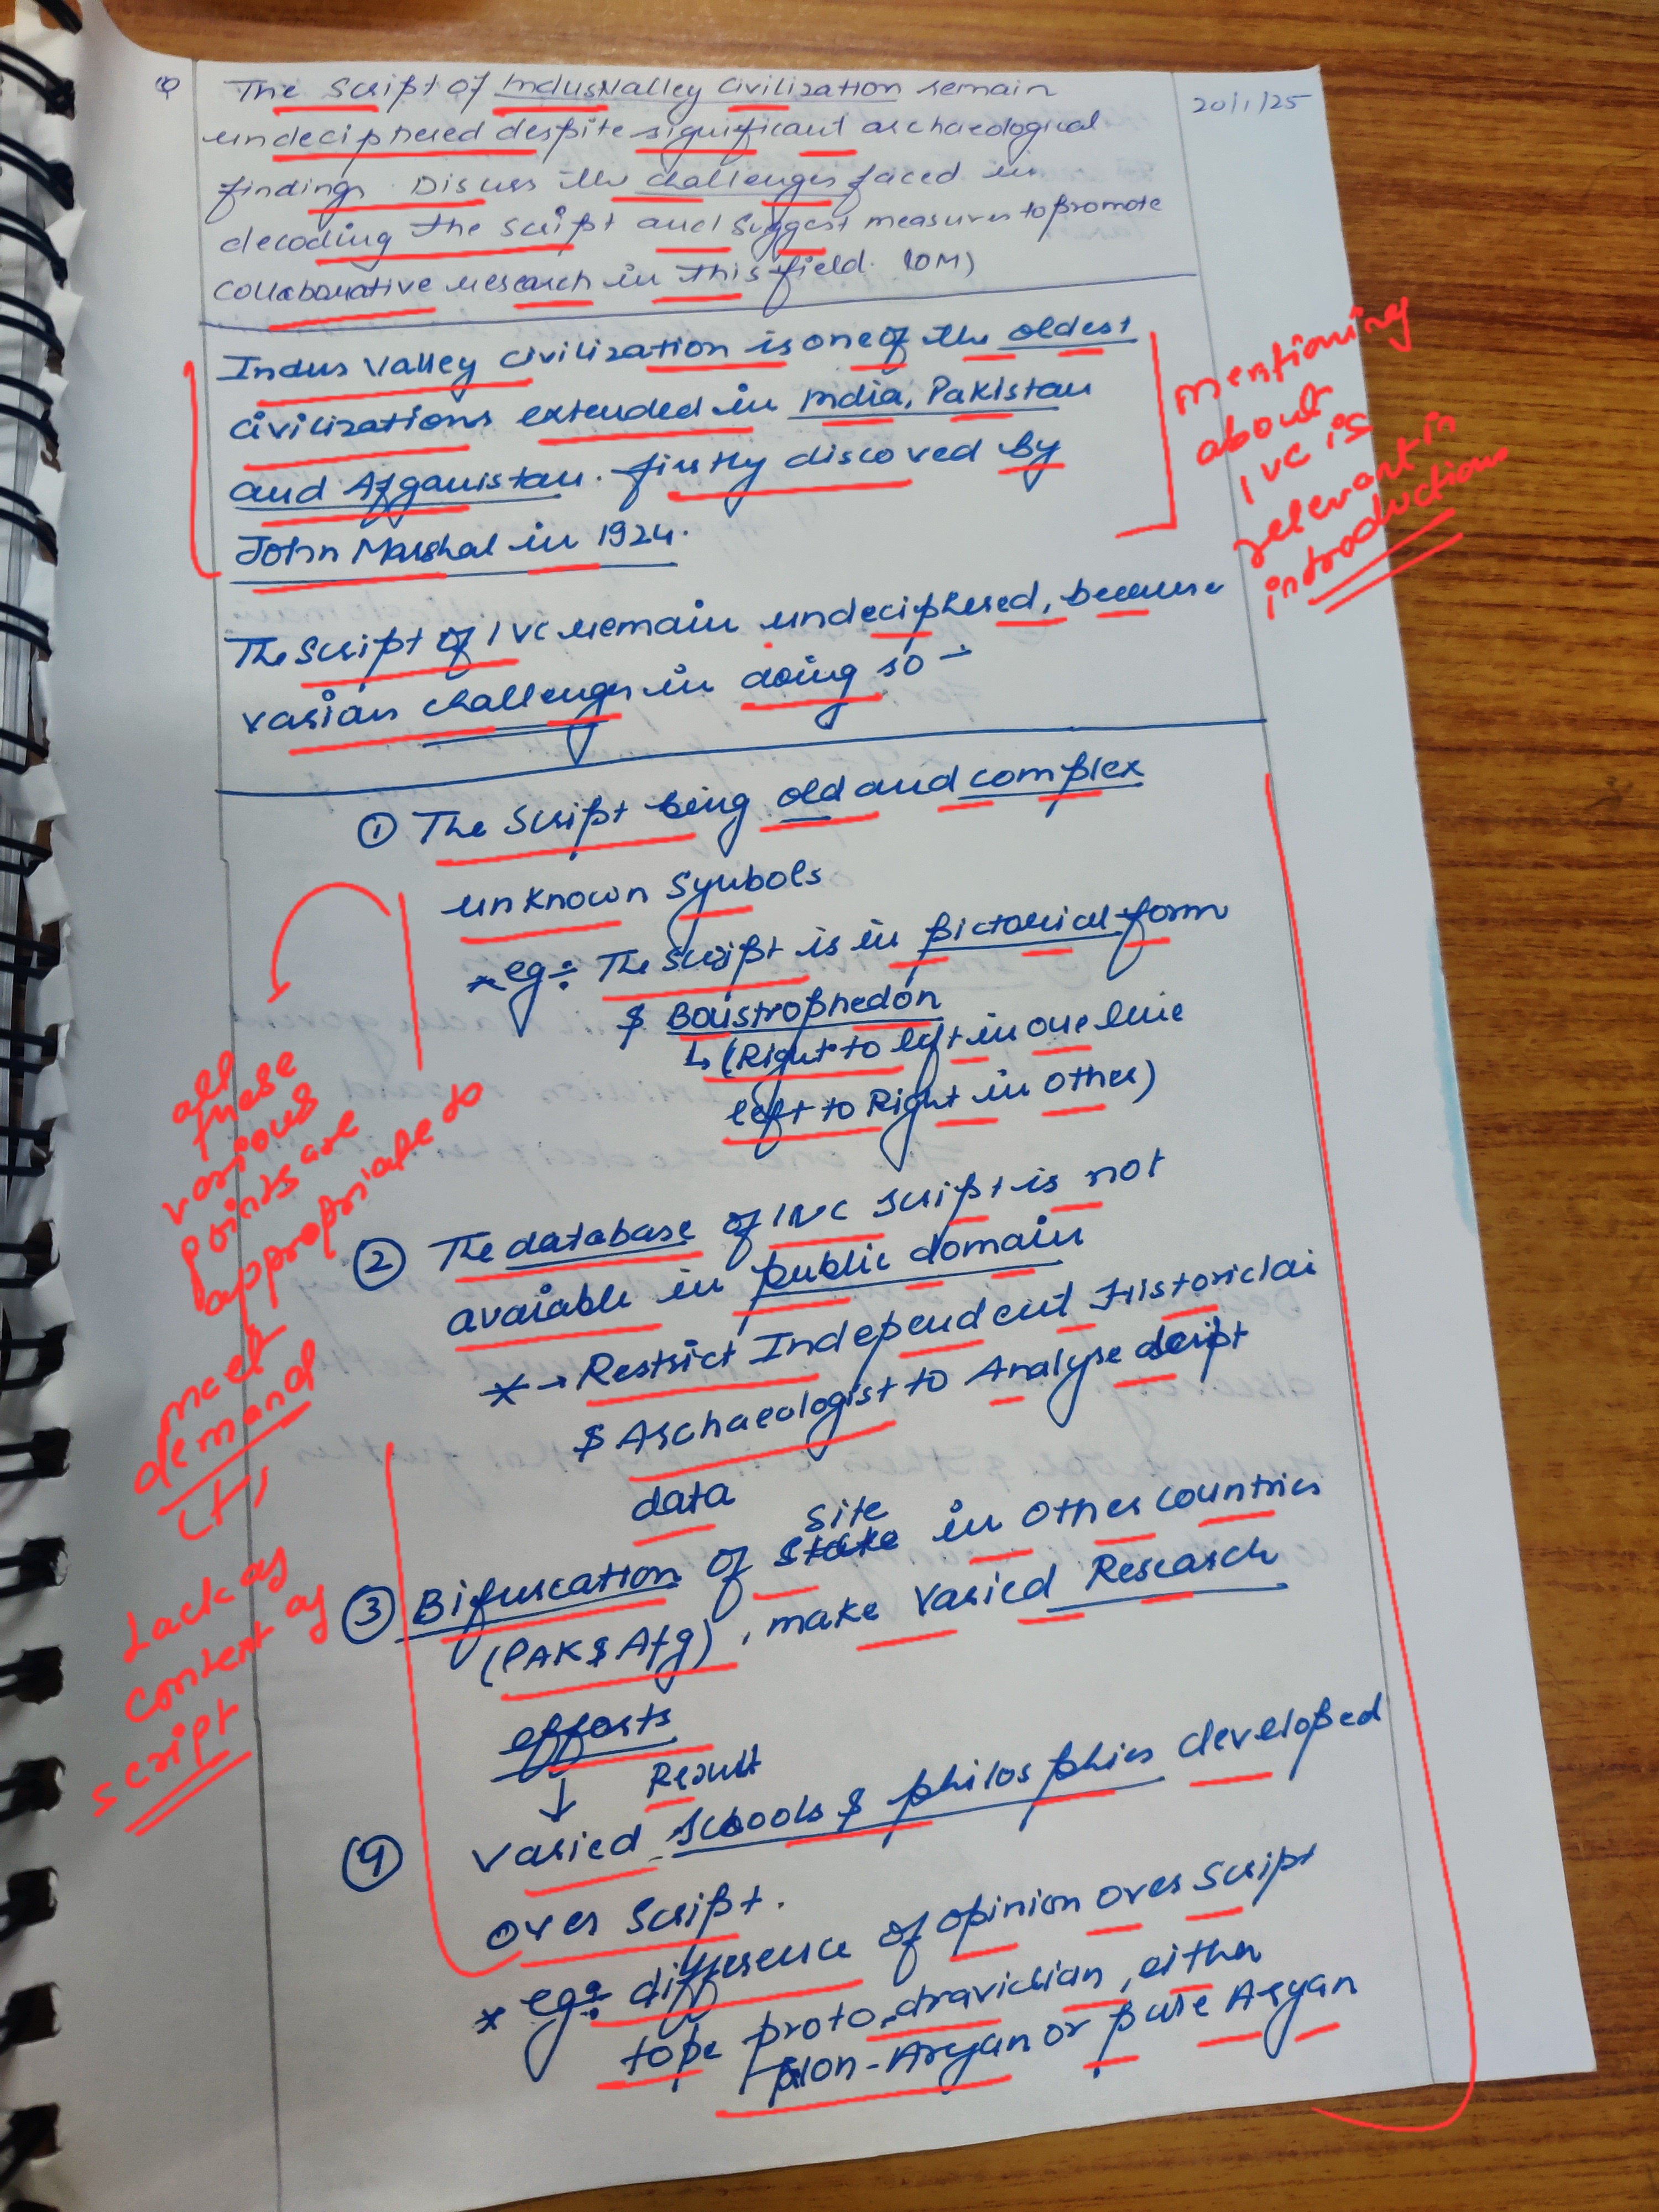 Q The Script of Indus Valley Civilization remain
20/1/25
undeciphered despite significant archaeological
findings. Discuss the challenges faced in
decoding the script and suggest measures to promote
collaborative research in this field. (10M)
Indus Valley Civilization is one of the oldest
civilizations extended in India, Pakistan
and Afganistan. firstly discoved by
John Marshal in 1924.
mentioning
about
IVC is
relevant in
introduction
The Script of IVC remain undeciphered, because
varian challenges in doing so –
① The Script being old and complex
unknown Symbols
* eg:- The Script is in pictorial form
$ Boustrophedon
↳ (Right to left in one line
left to Right in other)
all
these
various
points are
appropriate to
meet
demand
(+)
② The database of IVC script is not
avaiable in public domain
* → Restrict Independent Historiclai
$ Archaeologist to Analyse script
data
③ Bifurcation of site in other countries
(PAK $ Afg), make varied Research
efforts
↓ Result
Lack of
content of
script
④ Varied schools $ philosphies developed
over Script.
* eg:- difference of opinion over script
to be proto dravidian, either
Non-Aryan or pure Aryan